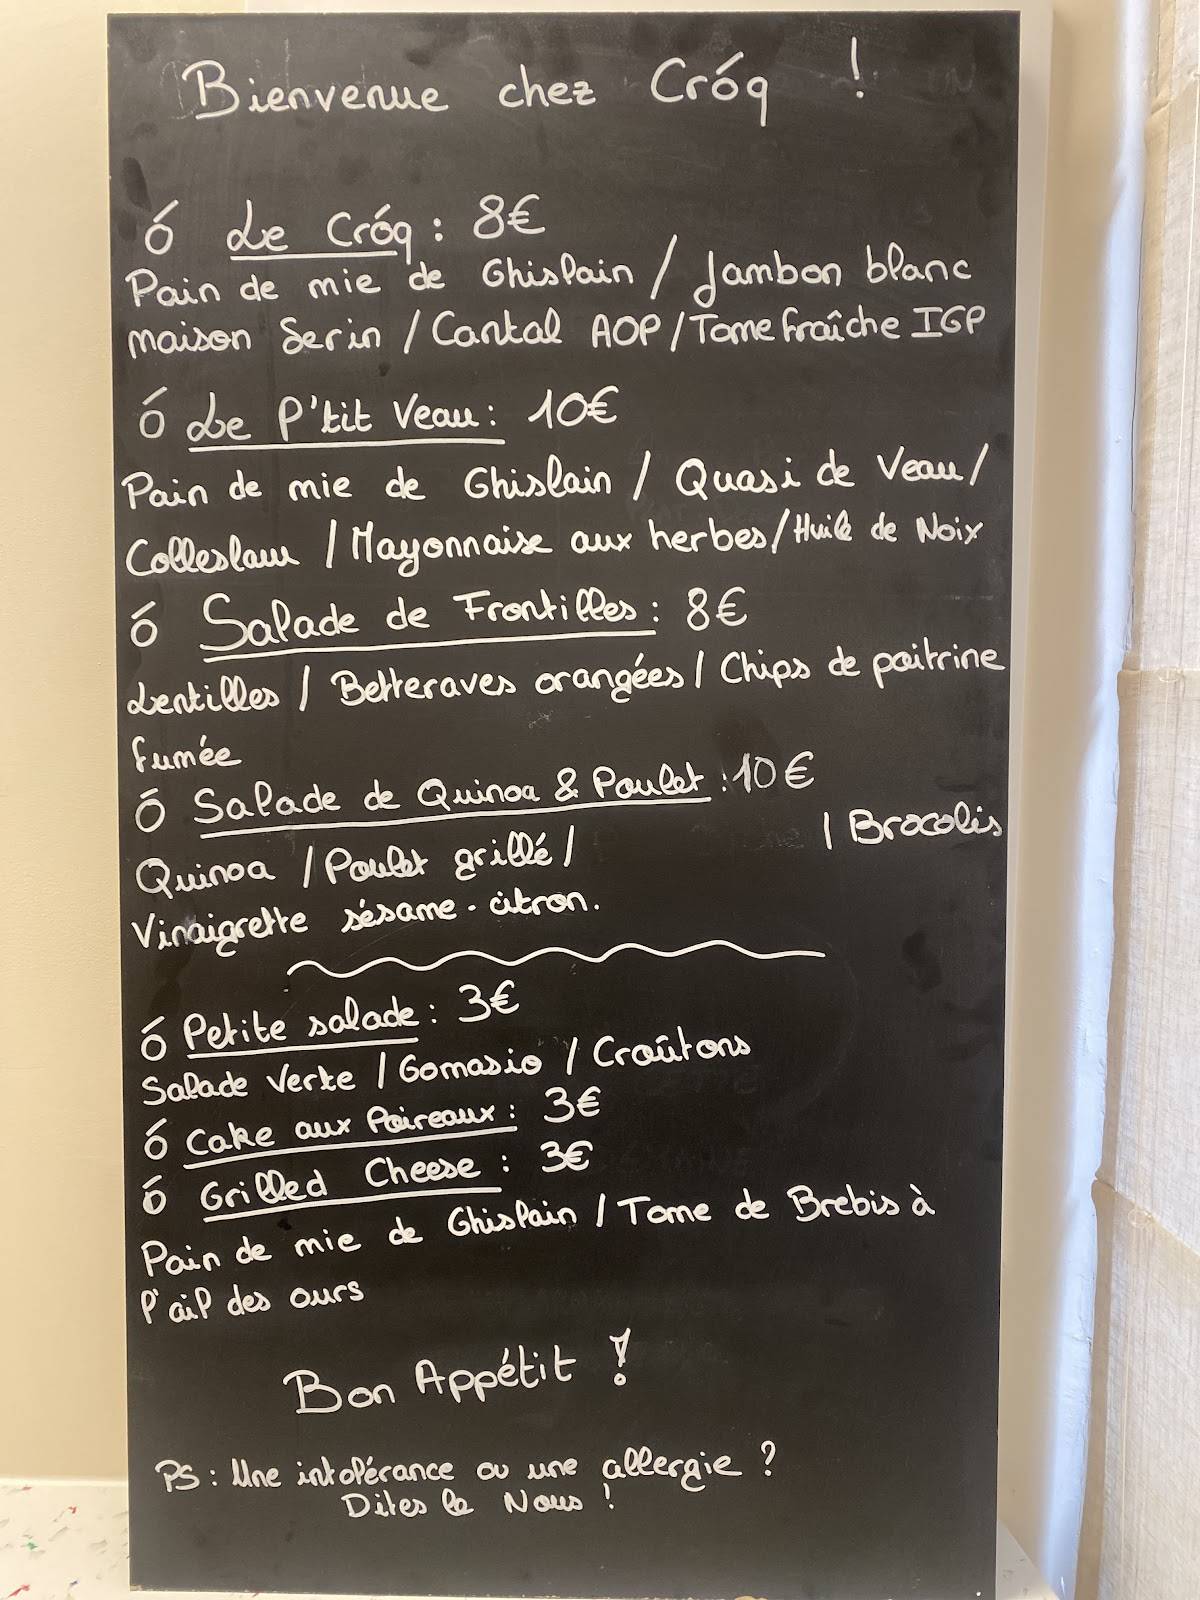 Bienvenue chez Cróq !
ó Le Cróq : 8€
Pain de mie de Ghislain / Jambon blanc
maison Serin / Cantal AOP / Tome fraîche IGP
ó Le P'tit Veau : 10€
Pain de mie de Ghislain / Quasi de Veau /
Colleslaw / Mayonnaise aux herbes / Huile de Noix
ó Salade de Frontilles : 8€
Lentilles / Betteraves orangées / Chips de poitrine
fumée
ó Salade de Quinoa & Poulet : 10€
Quinoa / Poulet grillé / / Brocolis
Vinaigrette sésame - citron.
ó Petite salade : 3€
Salade Verte / Gomasio / Croûtons
ó Cake aux Poireaux : 3€
ó Grilled Cheese : 3€
Pain de mie de Ghislain / Tome de Brebis à
l'ail des ours
Bon Appétit !
PS : Une intolérance ou une allergie ?
Dites le Nous !